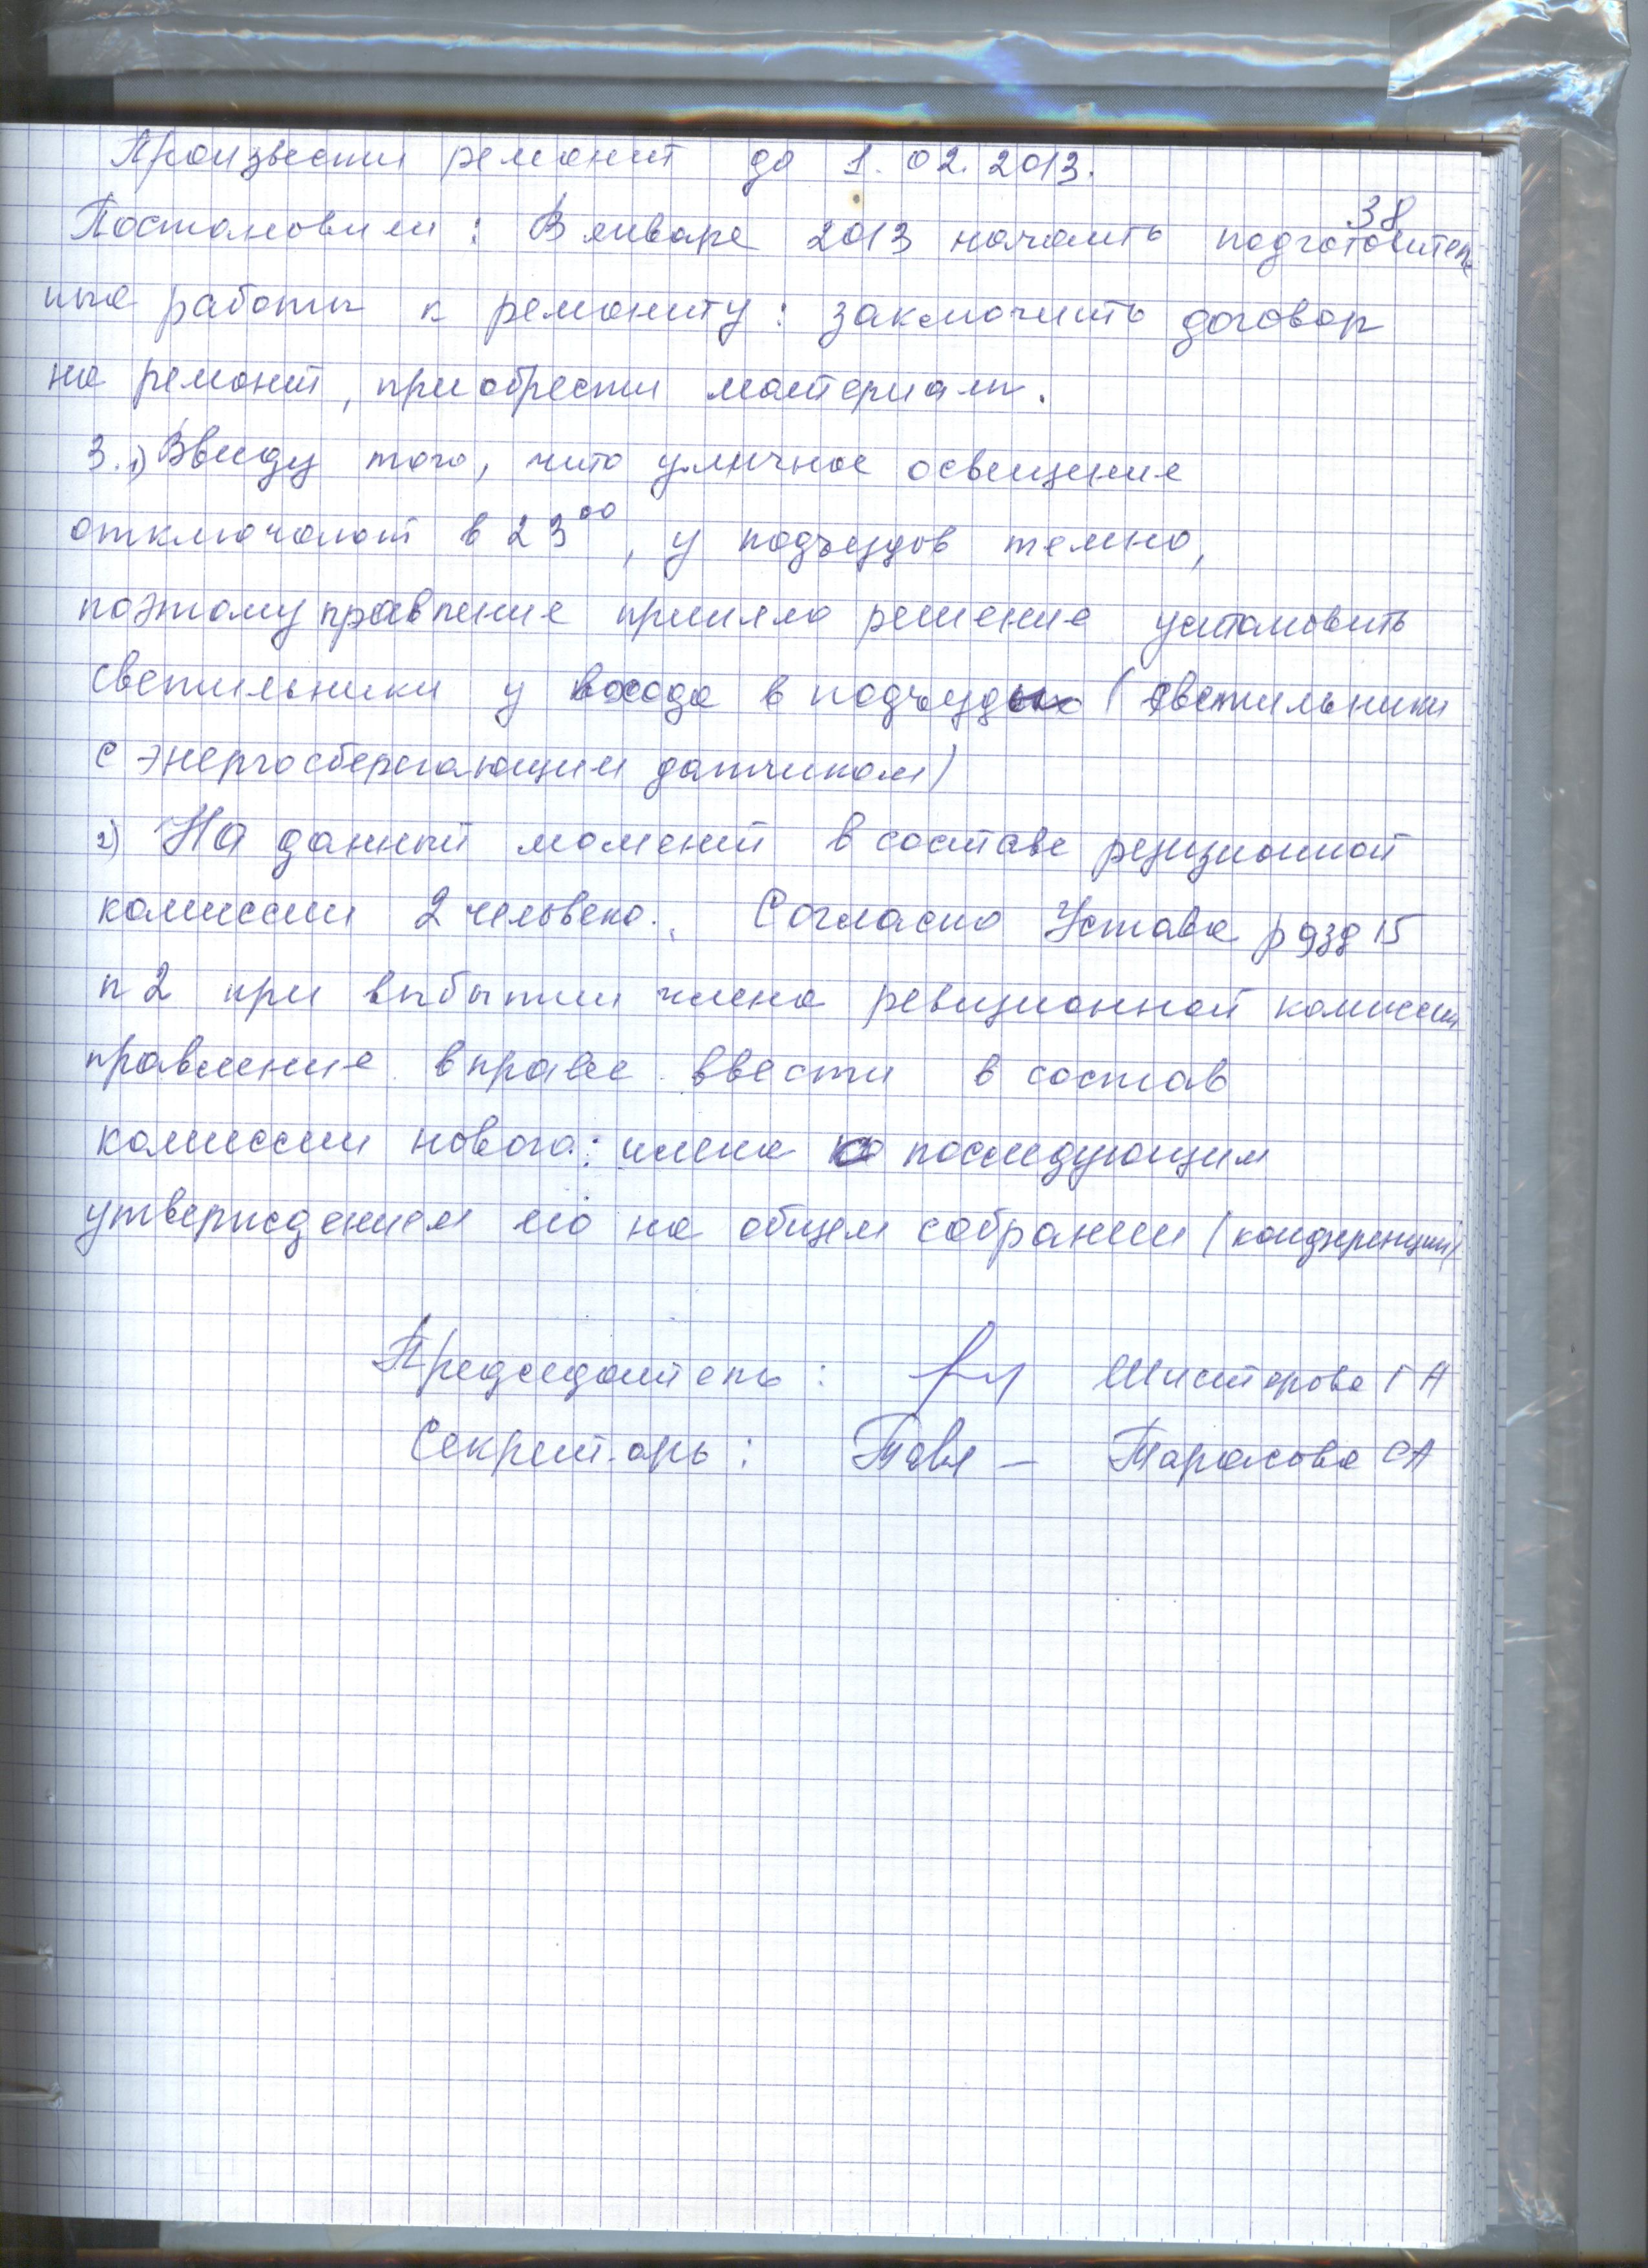 Произвести ремонт до 1.02.2013.
38
Постановили: В январе 2013 начать подготовитель
ные работы к ремонту: заключить договор
на ремонт, приобрести материалы.
3. 1) Ввиду того, что уличное освещение
отключают в 23⁰⁰, у подъездов темно,
поэтому правление приняло решение установить
светильники у входа в подъезды (светильники
с энергосберегающим датчиком)
2) На данный момент в составе ревизионной
комиссии 2 человека. Согласно Устава разд 15
п 2 при выбытии члена ревизионной комиссии
правление вправе ввести в состав
комиссии нового члена с последующим
утверждением его на общем собрании (конференции)
Председатель: Шистерова Г А
Секретарь: Тарасова СА